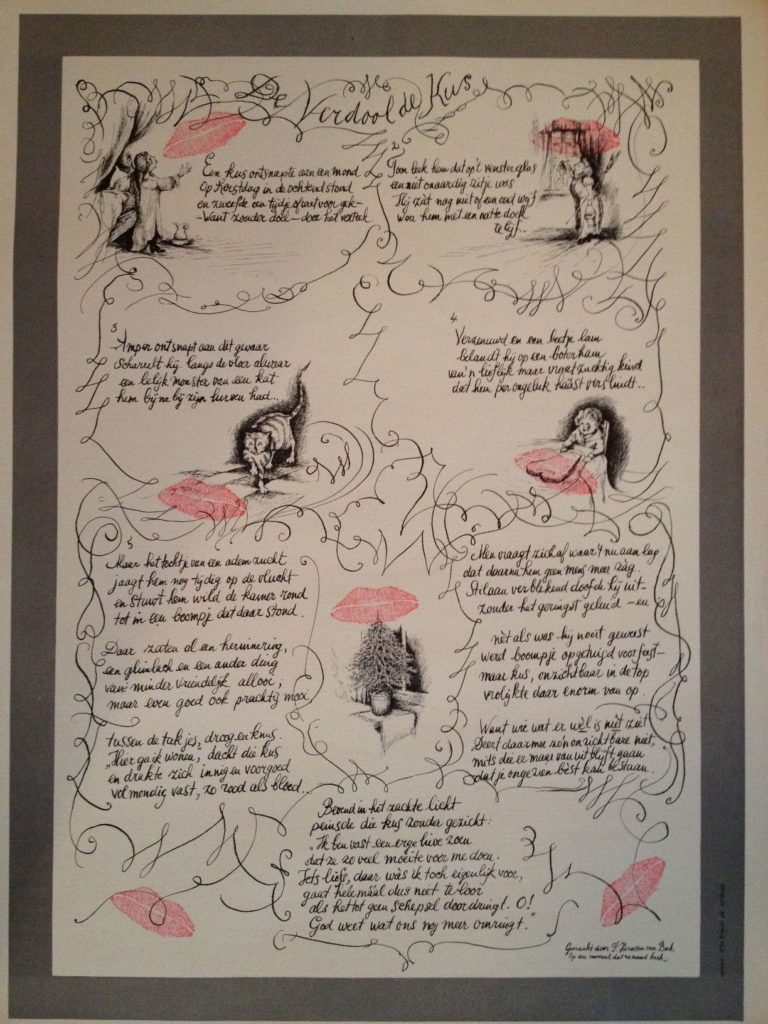 De Verdoolde Kus
Een kus ontsnapte aan een mond
Op Kerstdag in de ochtendstond
en zweefde een tijdje of wat voor gek –
– Want zonder doel – door het vertrek
2
Toen leek hem dat op 't vensterglas
een niet onaardig zitje was
Hij zàt nog niet of een oud wijf
wou hem met een natte doek
te lijf..
3
Amper ontsnapt aan dit gevaar
Scharrelt hij langs de vloer alwaar
een lelijk monster van een kat
hem bijna bij zijn lurven had..
4
Vereenuwd en een beetje lam
belandt hij op een boterham
van 'n lieflijk maar vraatzuchtig kind
dat hem per ongeluk háást verslindt..
5
Maar het tochtje van een ademzucht
jaagt hem nog tijdig op de vlucht
en stuwt hem wild de kamer rond
tot in een boompje dat daar stond.
Daar zaten al een herinnering,
een glimlach en een ander ding
van minder vriendelijk allooi,
maar even goed ook prachtig mooi
tussen de takjes, droog en knus.
„Hier ga ik wonen", dacht die kus
en drukte zich innig en voorgoed
volmondig vast, zo rood als bloed..
Men vraagt zich af waar 't nu aan lag
dat daarna hem geen mens meer zag.
Stilaan verblekend doofde hij uit –
zonder het geringst geluid – en
nèt als was hij nooit geweest
werd boompje opgetuigd voor feest –
maar kus, onzichtbaar in de top
vrolijkte daar enorm van op
Want wie wat er wèl is niet ziet
Deert daarmee zo'n onzichtbare niet,
mits die er maar van uit blijft gaan
dat je ongezien bèst kan bestaan.
Bevend in het zachte licht
peinsde die kus zonder gezicht:
„Ik ben vast een erge lieve zoen
dat ze zo veel moeite voor me doen.
Iets liefs, daar wàs ik toch eigenlijk voor,
gaat helemáál dus niet te loor
als het tot geen schepsel doordringt. O!
God weet wat ons nog meer omringt."
Gemaakt door F. Harmsen van Beek
Op een moment dat niemand keek